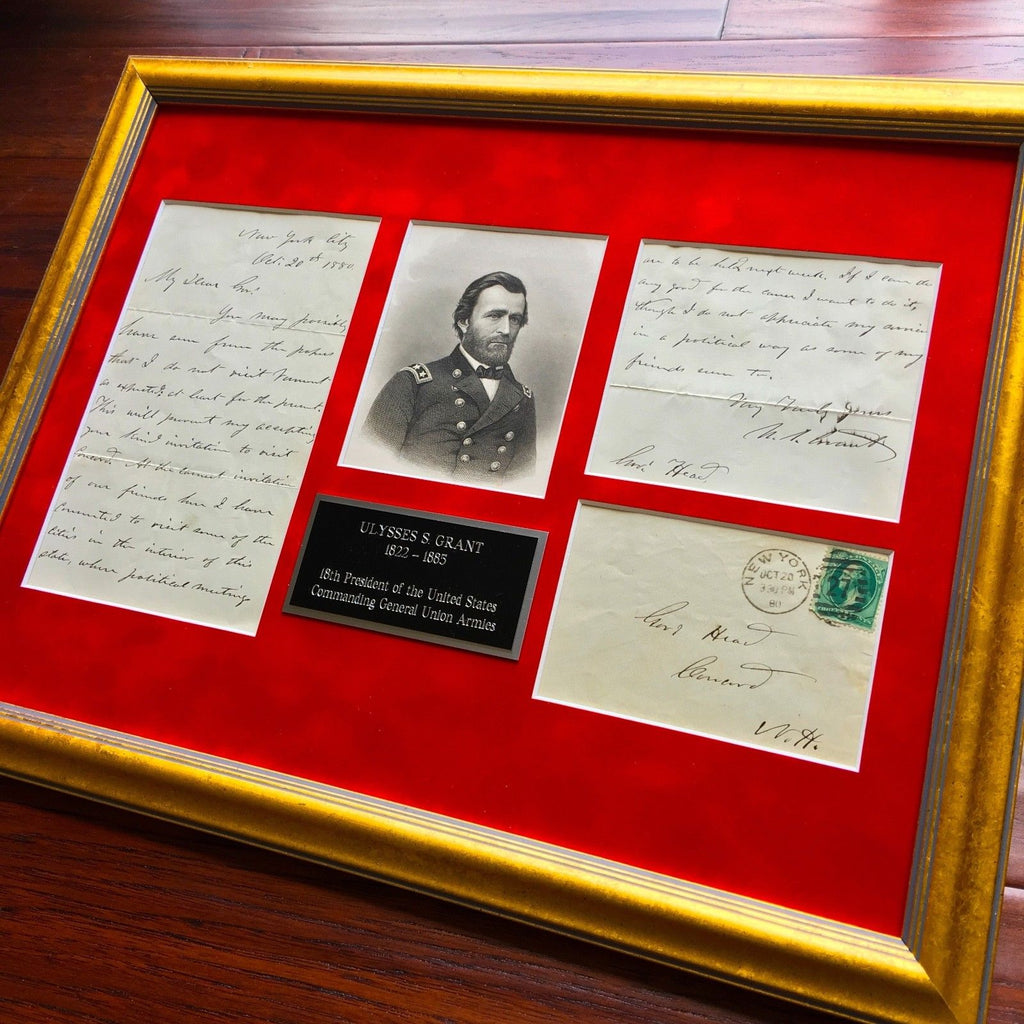 New York City
Oct. 20th 1880.
My Dear Gov.
You may possibly
have seen from the papers
that I do not visit Vermont
as expected, at least for the present.
This will prevent my accepting
your kind invitation to visit
Concord. At the earnest invitation
of our friends here I have
consented to visit some of the
cities in the interior of this
state, where political meetings
are to be held next week. If I can do
any good for the cause I want to do it,
though I do not appreciate my services
in a political way as some of my
friends seem to.
Very Truly Yours
U. S. Grant
Gov. Head
ULYSSES S. GRANT
1822 – 1885
18th President of the United States
Commanding General Union Armies
NEW YORK
OCT 20
80
Gov. Head
Concord
N.H.